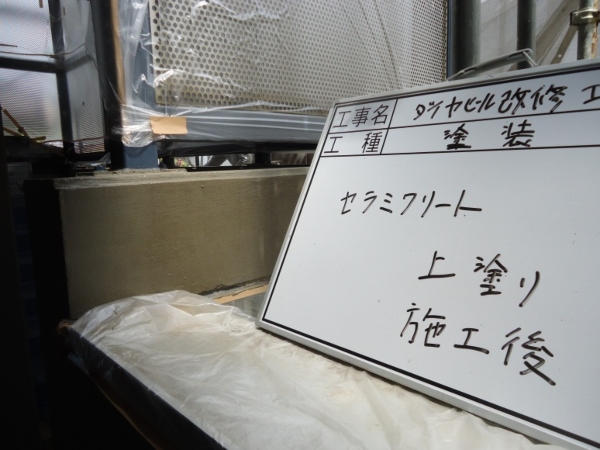 工事名 ダイヤビル改修工
工種 塗装
セラミクリート
上塗り
施工後